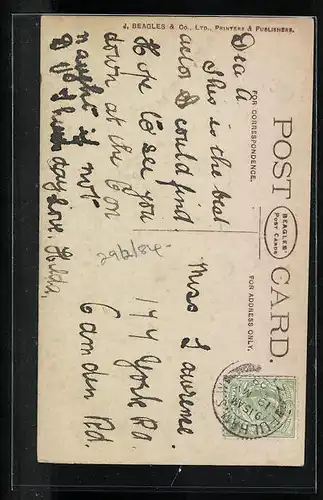 J. BEAGLES & Co., LTD., PRINTERS & PUBLISHERS.
POST CARD.
BEAGLES'
POST CARDS
FOR CORRESPONDENCE.
FOR ADDRESS ONLY.
Dea A
This is the best
I could find.
Hope to see you
down at the Con
if not
day love Hilda
29b/84
Miss Lawrence
144 York Rd.
Camden Rd.
FULHAM